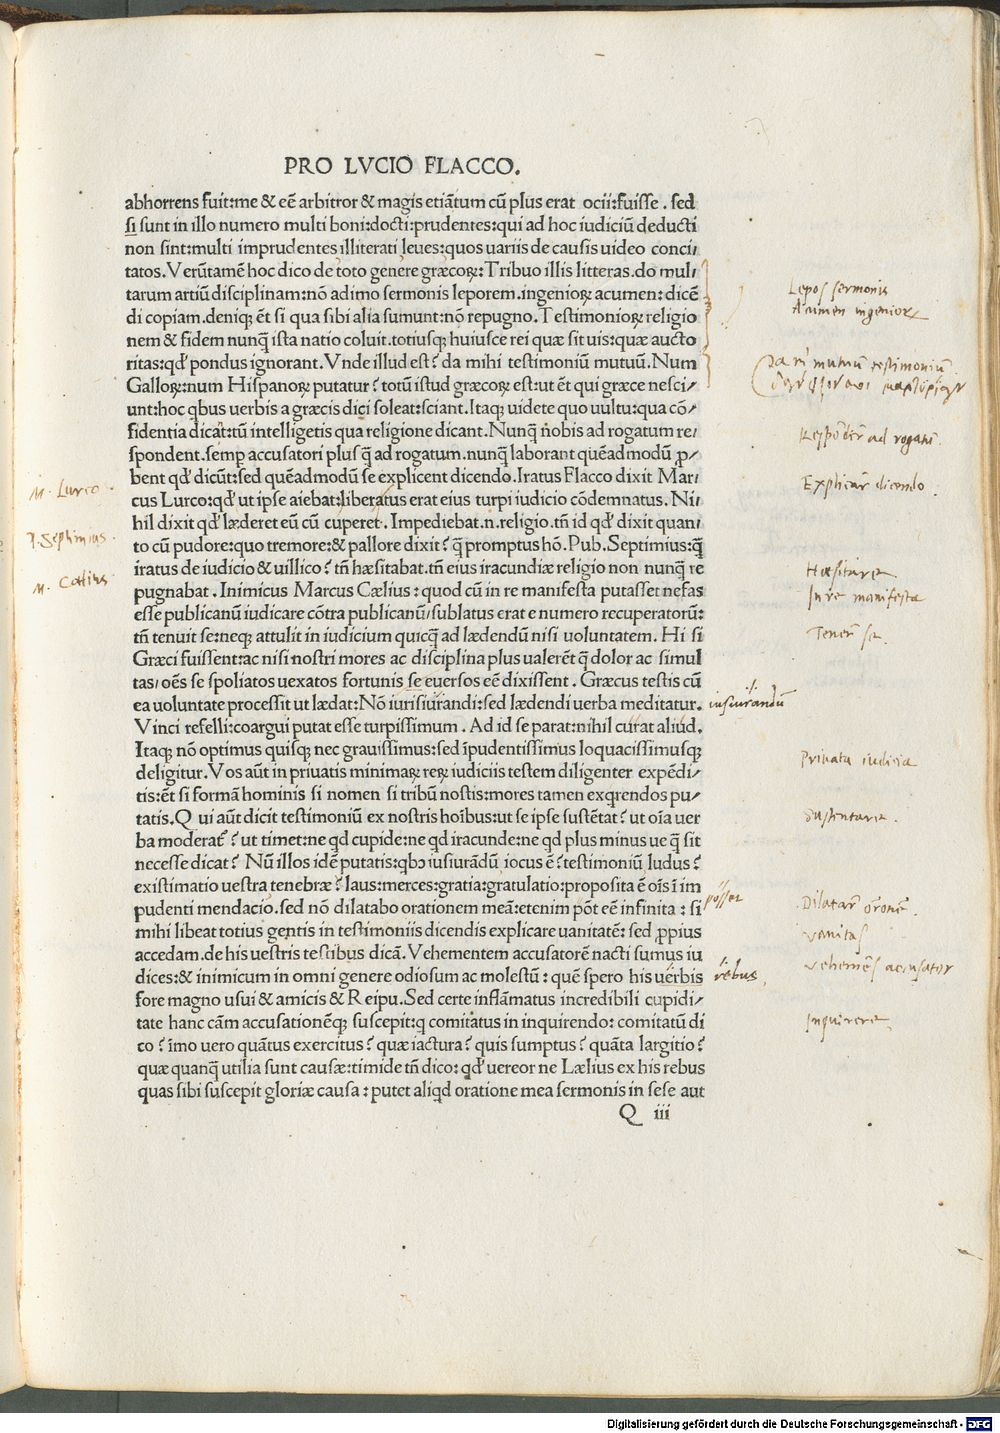 PRO LVCIO FLACCO.
abhorrens fuit:me & eē arbitror & magis etiātum cū plus erat ocii:fuisse . sed
si sunt in illo numero multi boni:docti:prudentes:qui ad hoc iudiciū deducti
non sint:multi imprudentes illiterati leues:quos uariis de causis uideo conci/
tatos.Verūtamē hoc dico de toto genere græcoꝝ:Tribuo illis litteras.do mul/
tarum artiū disciplinam:nō adimo sermonis leporem.ingenioꝝ acumen: dicē
di copiam.deniqꝫ ēt si qua sibi alia sumunt:nō repugno.Testimonioꝝ religio
nem & fidem nunq̄ ista natio coluit.totiusqꝫ huiusce rei quæ sit uis:quæ aucto
ritas:qd' pondus ignorant.Vnde illud est? da mihi testimoniū mutuū.Num
Galloꝝ:num Hispanoꝝ putatur? totū istud græcoꝝ est:ut ēt qui græce nesci/
unt:hoc qbus uerbis a græcis dici soleat:sciant.Itaqꝫ uidete quo uultu:qua cō/
fidentia dicāt:tū intelligetis qua religione dicant.Nunq̄ nobis ad rogatum re/
spondent.semp accusatori plusq̄ ad rogatum.nunq̄ laborant quēadmodū ꝓ/
bent qd' dicūt:sed quēadmodū se explicent dicendo.Iratus Flacco dixit Mar/
cus Lurco:qd' ut ipse aiebat:liberatus erat eius turpi iudicio cōdemnatus. Ni/
hil dixit qd' læderet eū cū cuperet. Impediebat.n.religio.tñ id qd' dixit quan/
to cū pudore:quo tremore:& pallore dixit? q̄ promptus hō.Pub.Septimius:q̄
iratus de iudicio & uillico? tñ hæsitabat.tñ eius iracundiæ religio non nunq̄ re
pugnabat. Inimicus Marcus Cælius: quod cū in re manifesta putasset nefas
esse publicanū iudicare cōtra publicanū/sublatus erat e numero recuperatorū:
tñ tenuit se:neqꝫ attulit in iudicium quicq̄ ad lædendū nisi uoluntatem. Hi si
Græci fuissent:ac nisi nostri mores ac disciplina plus ualerēt q̄ dolor ac simul
tas/oēs se spoliatos uexatos fortunis se euersos eē dixissent. Græcus testis cū
ea uoluntate processit ut lædat:Nō iurisiurandi:sed lædendi uerba meditatur.
Vinci refelli:coargui putat esse turpissimum. Ad id se parat:nihil curat aliud.
Itaqꝫ nō optimus quisqꝫ nec grauissimus:sed īpudentissimus loquacissimusqꝫ
deligitur.Vos aūt in priuatis minimaꝝ reꝝ iudiciis testem diligenter expēdi/
tis:ēt si formā hominis si nomen si tribū nostis:mores tamen exqrendos pu/
tatis.Qui aūt dicit testimoniū ex nostris hoībus:ut se ipse sustētat? ut oīa uer
ba moderat̄? ut timet:ne qd cupide:ne qd iracunde:ne qd plus minus ue q̄ sit
necesse dicat? Nū illos idē putatis:qbꝰ iusiurādū iocus ē?testimoniū ludus?
existimatio uestra tenebræ? laus:merces:gratia:gratulatio:proposita ē oīs ī im
pudenti mendacio.sed nō dilatabo orationem meā:etenim pōt eē infinita: si
mihi libeat totius gentis in testimoniis dicendis explicare uanitatē: sed ꝓpius
accedam.de his uestris testibus dicā.Vehementem accusatorē nacti sumus iu
dices:& inimicum in omni genere odiosum ac molestū: quē spero his uerbis
fore magno usui & amicis & Reipu.Sed certe inflāmatus incredibili cupidi/
tate hanc cām accusationēqꝫ suscepit:q comitatus in inquirendo: comitatū di
co? īmo uero quātus exercitus? quæ iactura? quis sumptus? quāta largitio?
quæ quanq̄ utilia sunt causæ:timide tñ dico: qd' uereor ne Lælius ex his rebus
quas sibi suscepit gloriæ causa: putet aliqd oratione mea sermonis in sese aut
Q iii
M. Lurco.
P. Septimius.
M. Cælius
Lepos sermonis
Acumen ingenioꝝ
Da mi mutuū testimoniū
Respōdere ad rogatū.
Explicare dicendo.
Hæsitare
In re manifesta
Tenere se.
iusiurandū
Priuata iudicia
Sustentare.
posset
Dilatare orōnē.
Vanitas
Vehemēs accusator
rebus
Inquirere
Digitalisierung gefördert durch die Deutsche Forschungsgemeinschaft - DFG